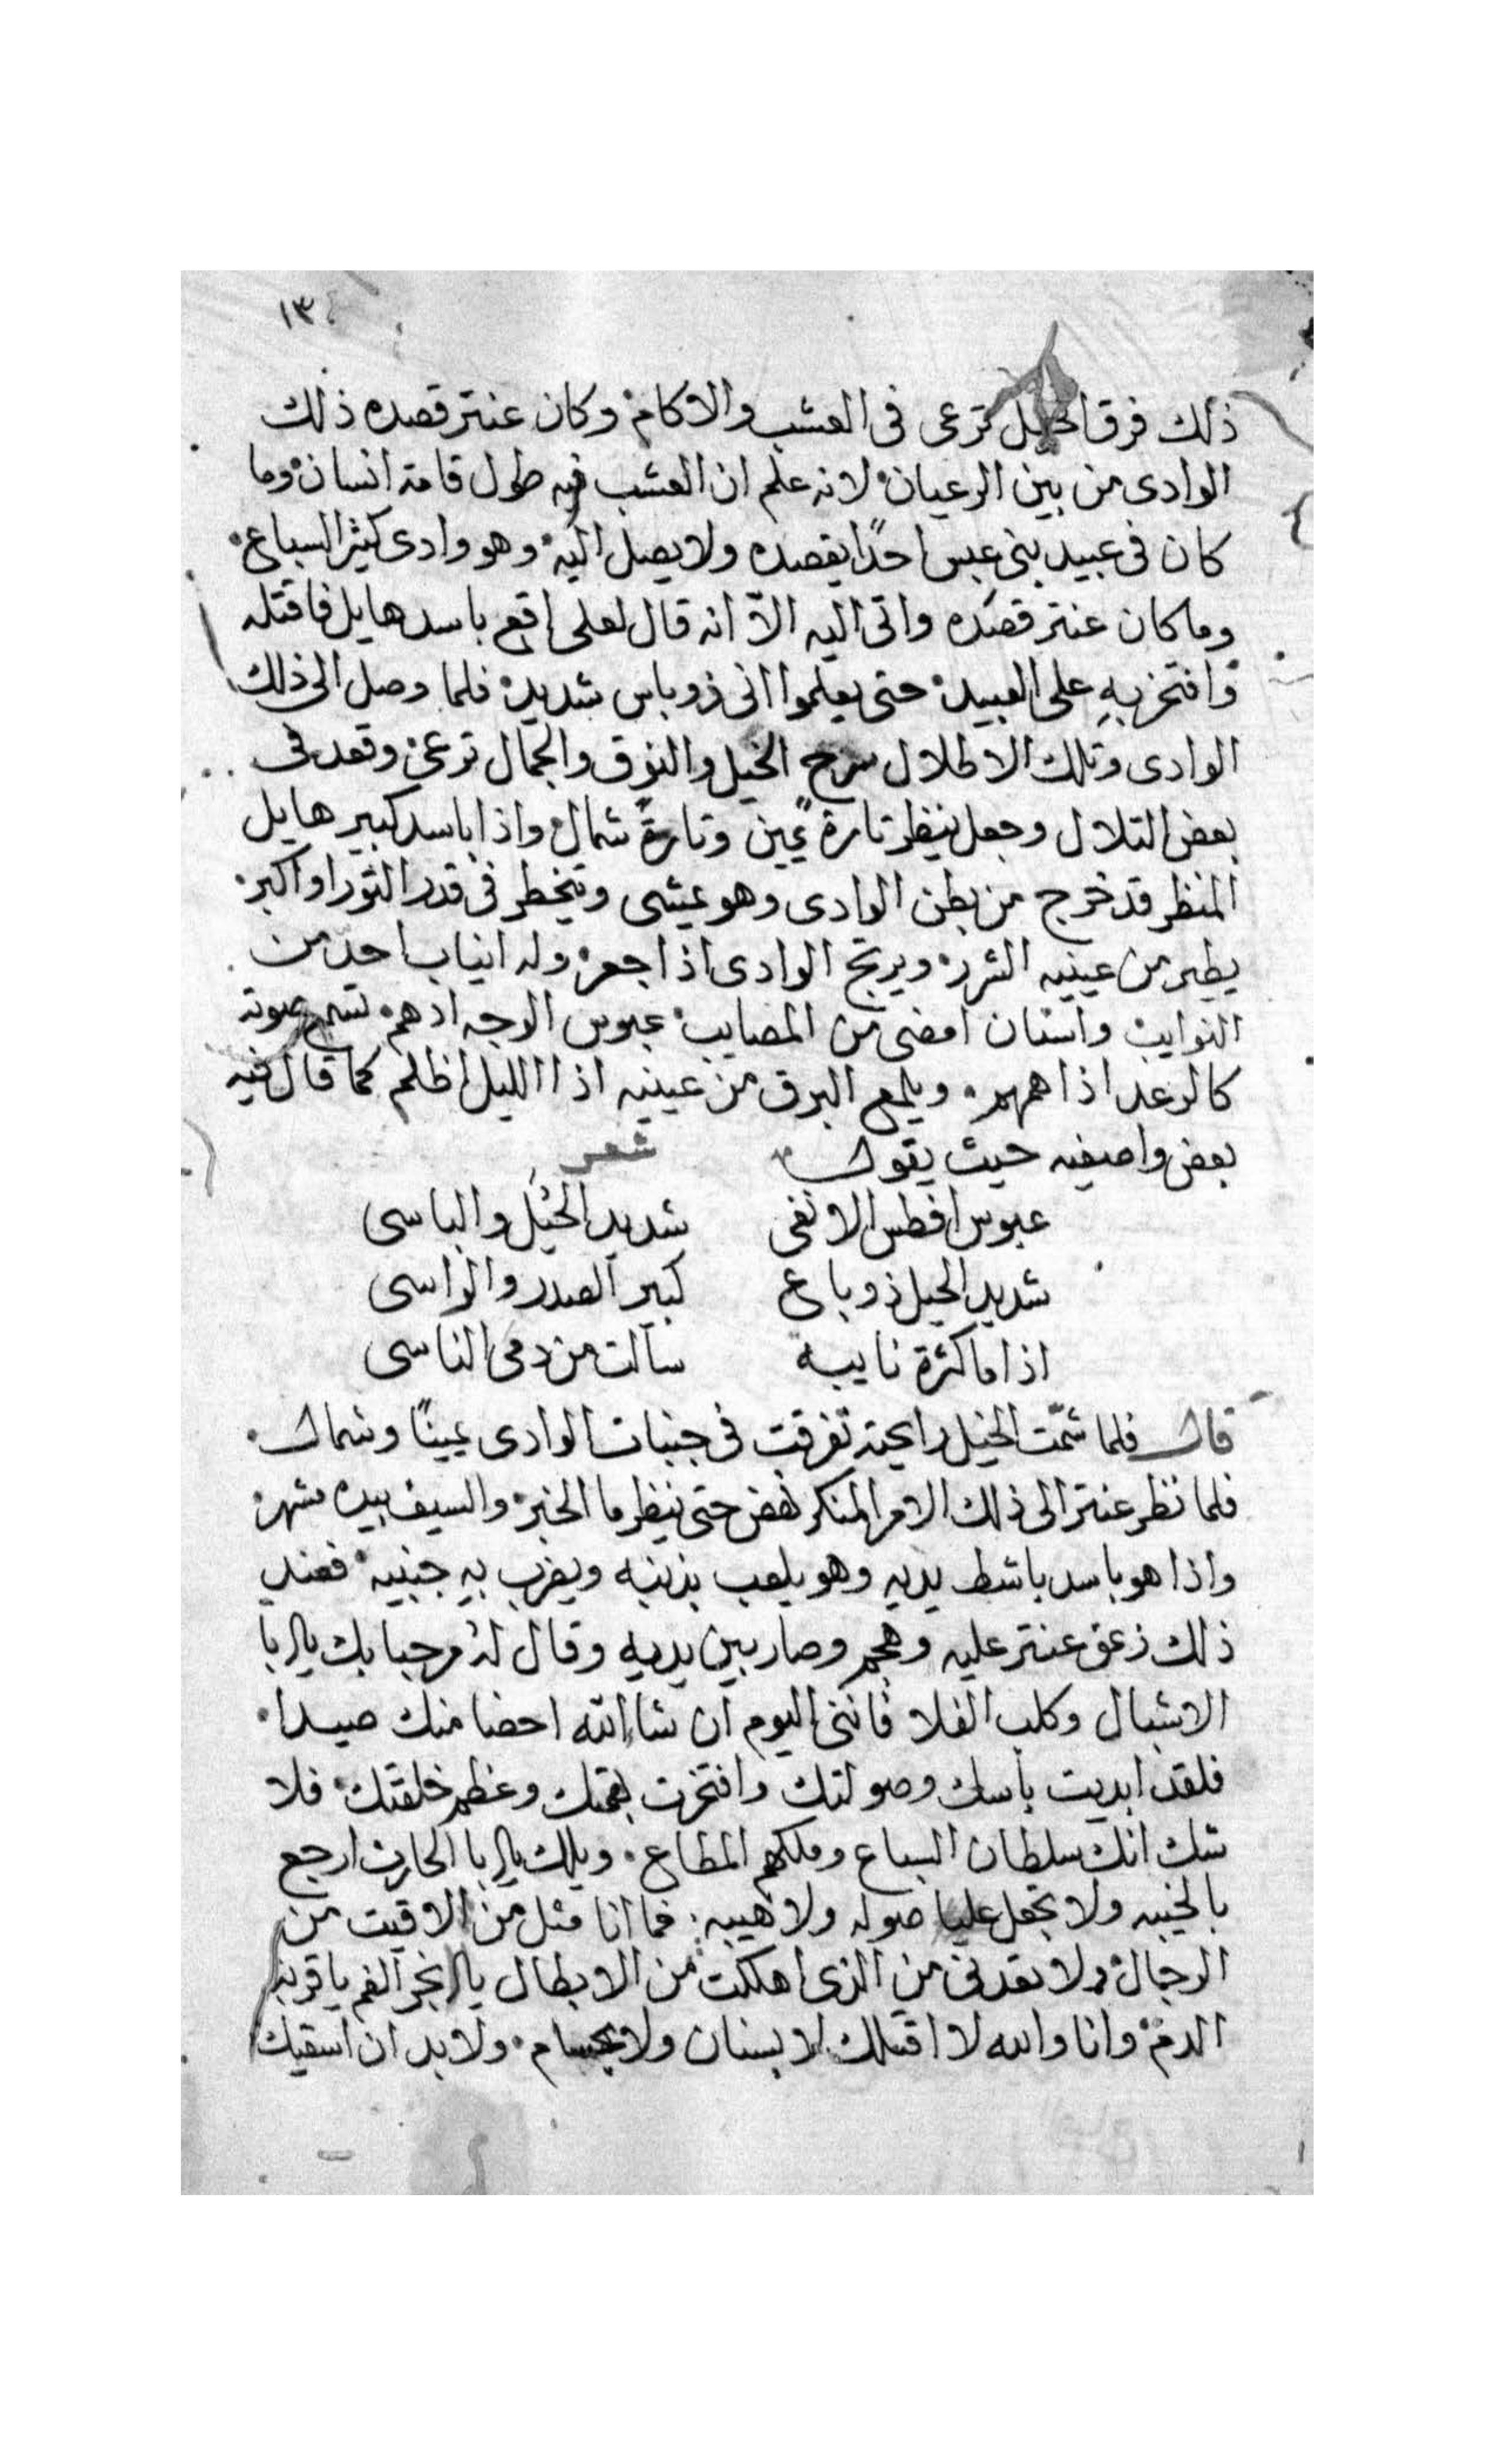 ١٣
ذلك فرق الخيل ترعى فى العشب والاكام وكان عنتر قصده ذلك
الوادى من بين الرعيان لانه علم ان العشب فيه طول قامة انسان وما
كان فى عبيد بنى عبس احدًا يقصده ولا يصل اليه وهو وادى كثير السباع
وما كان عنتر قصده واتى اليه الاّ انه قال لعلى اقع باسد هايل فاقتله
وافتخر به على العبيد حتى يعلموا انى ذو باس شديد فلما وصل الى ذلك
الوادى وتلك الاطلال سرح الخيل والنوق والجمال ترعى وقعد فى
بعض التلال وجعل ينظر تارة يمين وتارةً شمال واذا باسد كبير هايل
المنظر قد خرج من بطن الوادى وهو يمشى ويتخطر فى قدر الثور او اكبر
يطير من عينيه الشرر ويرتج الوادى اذا جعر وله انياب احدّ من
النوايب واسنان امضى من المصايب عبوس الوجه ادهم تسمع صوته
كالرعد اذا همهم ويلمع البرق من عينيه اذا الليل اظلم كما قال فيه
بعض واصفيه حيث يقول شعر
عبوس افطس الانفى شديد الحيل والباسى
شديد الحيل ذو باع كبير الصدر والراسى
اذا ما كثرة نايبه سالت من دمى الناسى
قال فلما شمّت الخيل رايحته تفرقت فى جنبات الوادى يمينًا وشمال
فلما نظر عنتر الى ذلك الامر المنكر نهض حتى ينظر ما الخبر والسيف بيده مشهر
واذا هو باسد باشط يديه وهو يلعب بذنبه ويضرب به جنبيه فعند
ذلك زعق عنتر عليه وهجم وصار بين يديه وقال له مرحبا بك يا ابا
الاشبال وكلب الفلا فاننى اليوم ان شا الله احضا منك صيدا
فلقد ابديت باسك وصولتك وافتخرت بهمتك وعظم خلقتك فلا
شك انك سلطان السباع وملكهم المطاع ويلك يا ابا الحارث ارجع
بالخيبه ولا تجعل عليا صوله ولا هيبه فما انا مثل من لاقيت من
الرجال ولا تعدنى من الذى اهلكت من الابطال يا ابخر الفم يا قريب
الدم وانا والله لا اقتلك لا بسنان ولا بحسام ولا بد ان اسقيك